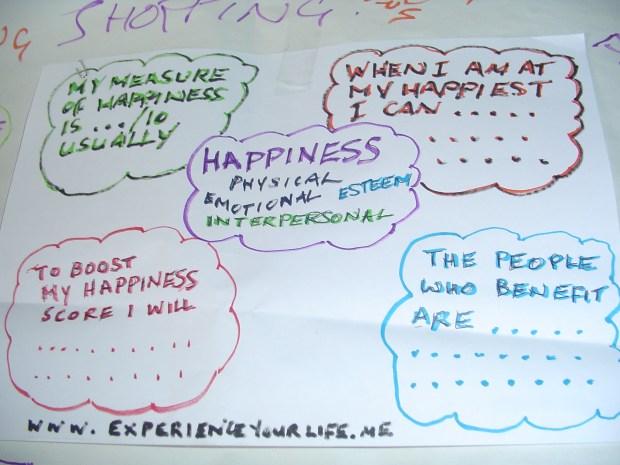 SHOPPING.
MY MEASURE
OF HAPPINESS
IS .../10
USUALLY
WHEN I AM AT
MY HAPPIEST
I CAN .....
.....
.....
HAPPINESS
PHYSICAL
EMOTIONAL ESTEEM
INTERPERSONAL
TO BOOST
MY HAPPINESS
SCORE I WILL
.........
.........
THE PEOPLE
WHO BENEFIT
ARE .....
........
........
WWW. EXPERIENCEYOURLIFE.ME